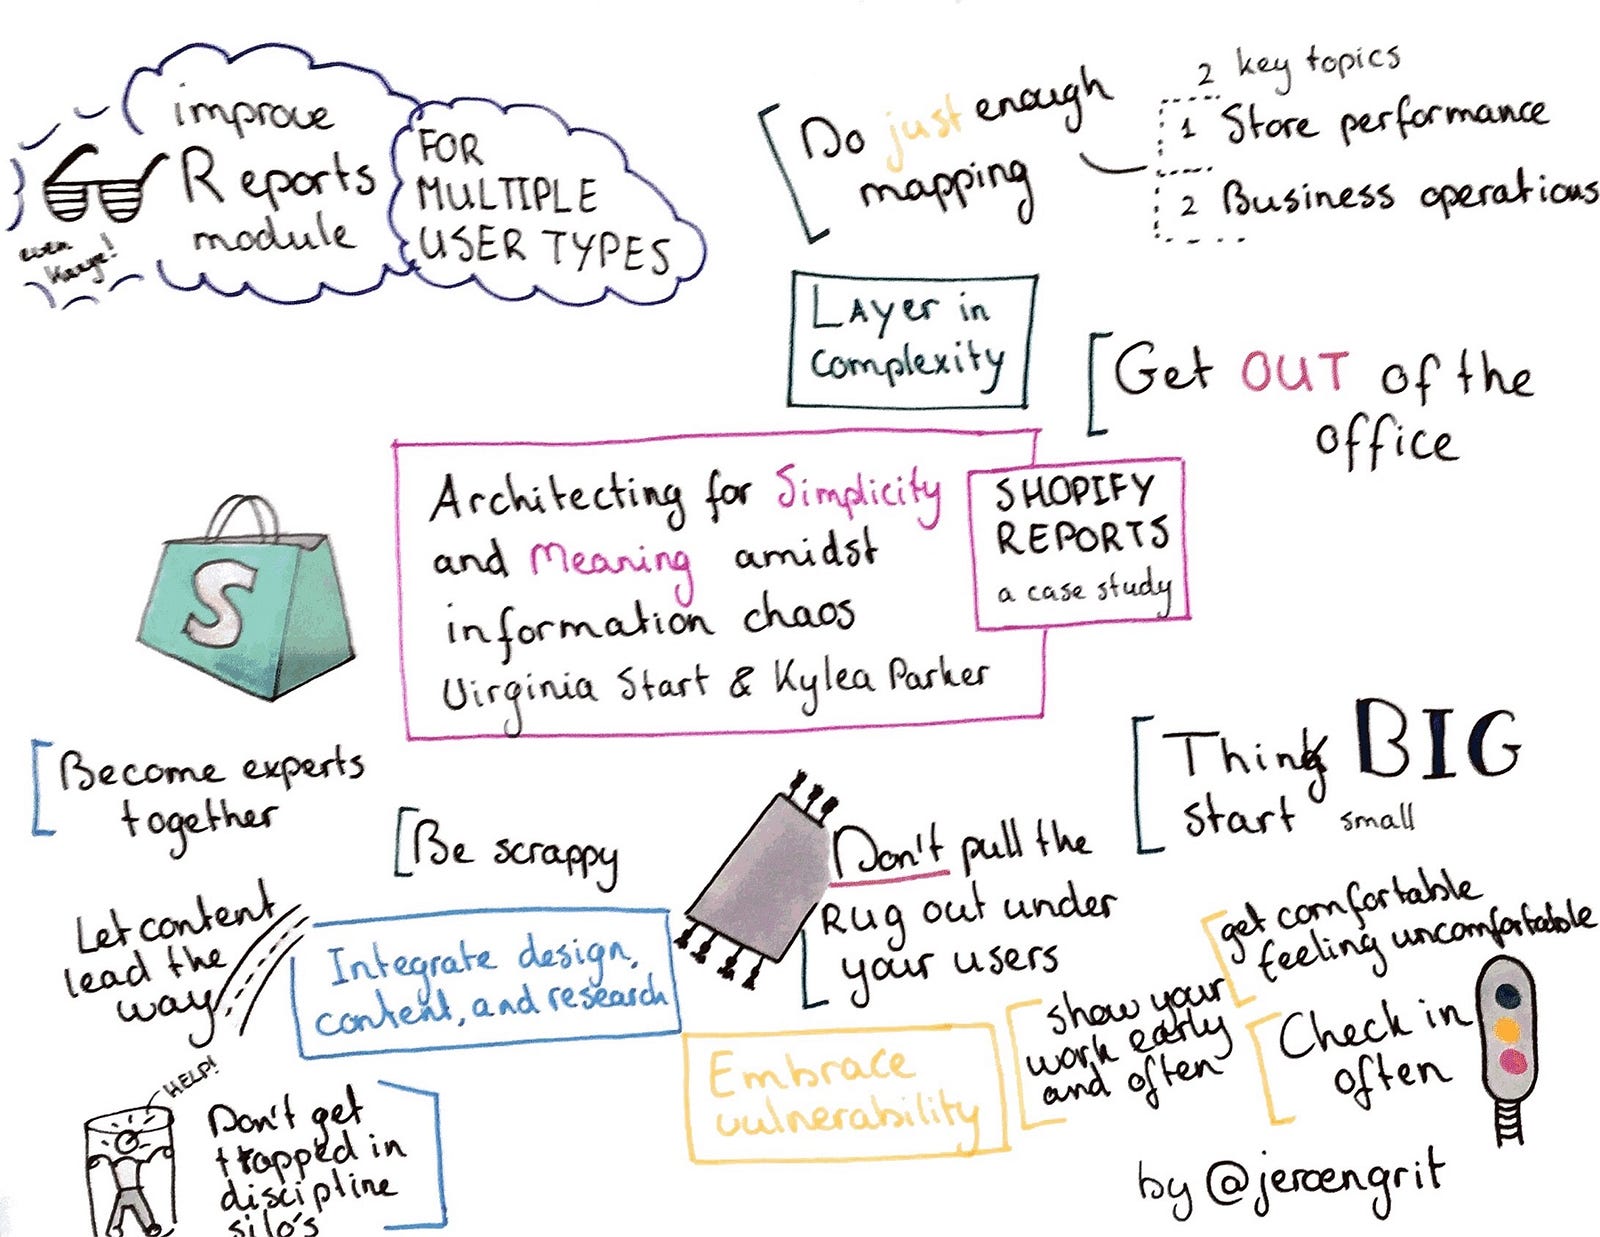 improve
Reports
module
even
Kanye!
FOR
MULTIPLE
USER TYPES
Do just enough
mapping
2 key topics
1 Store performance
2 Business operations
Layer in
complexity
Get OUT of the
office
Architecting for Simplicity
and Meaning amidst
information chaos
Virginia Start & Kylea Parker
SHOPIFY
REPORTS
a case study
S
Become experts
together
Be scrappy
Think BIG
start small
Don't pull the
Rug out under
your users
Let content
lead the
way
Integrate design,
content, and research
get comfortable
feeling uncomfortable
show your
work early
and often
Check in
often
Embrace
vulnerability
HELP!
Don't get
trapped in
discipline
silo's
by @jeroengrit